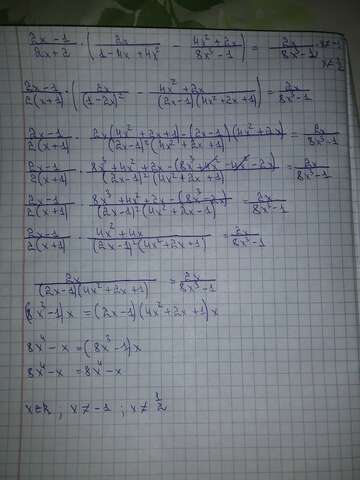 (2x-1)/(2x+2) · (2x/(1-4x+4x²) - (4x²+2x)/(8x³-1)) = 2x/(8x³-1), x≠-1 x≠1/2
(2x-1)/(2(x+1)) · (2x/(1-2x)² - (4x²+2x)/((2x-1)(4x²+2x+1))) = 2x/(8x³-1)
(2x-1)/(2(x+1)) · (2x(4x²+2x+1)-(2x-1)(4x²+2x))/((2x-1)²(4x²+2x+1)) = 2x/(8x³-1)
(2x-1)/(2(x+1)) · (8x³+4x²+2x-(8x³+4x²-4x²-2x))/((2x-1)²(4x²+2x+1)) = 2x/(8x³-1)
(2x-1)/(2(x+1)) · (8x³+4x²+2x-(8x³-2x))/((2x-1)²(4x²+2x-1)) = 2x/(8x³-1)
(2x-1)/(2(x+1)) · (4x²+4x)/((2x-1)²(4x²+2x+1)) = 2x/(8x³-1)
2x/((2x-1)(4x²+2x+1)) = 2x/(8x³-1)
(8x³-1)x = (2x-1)(4x²+2x+1)x
8x⁴-x = (8x³-1)x
8x⁴-x = 8x⁴-x
x∈R, x≠-1; x≠1/2